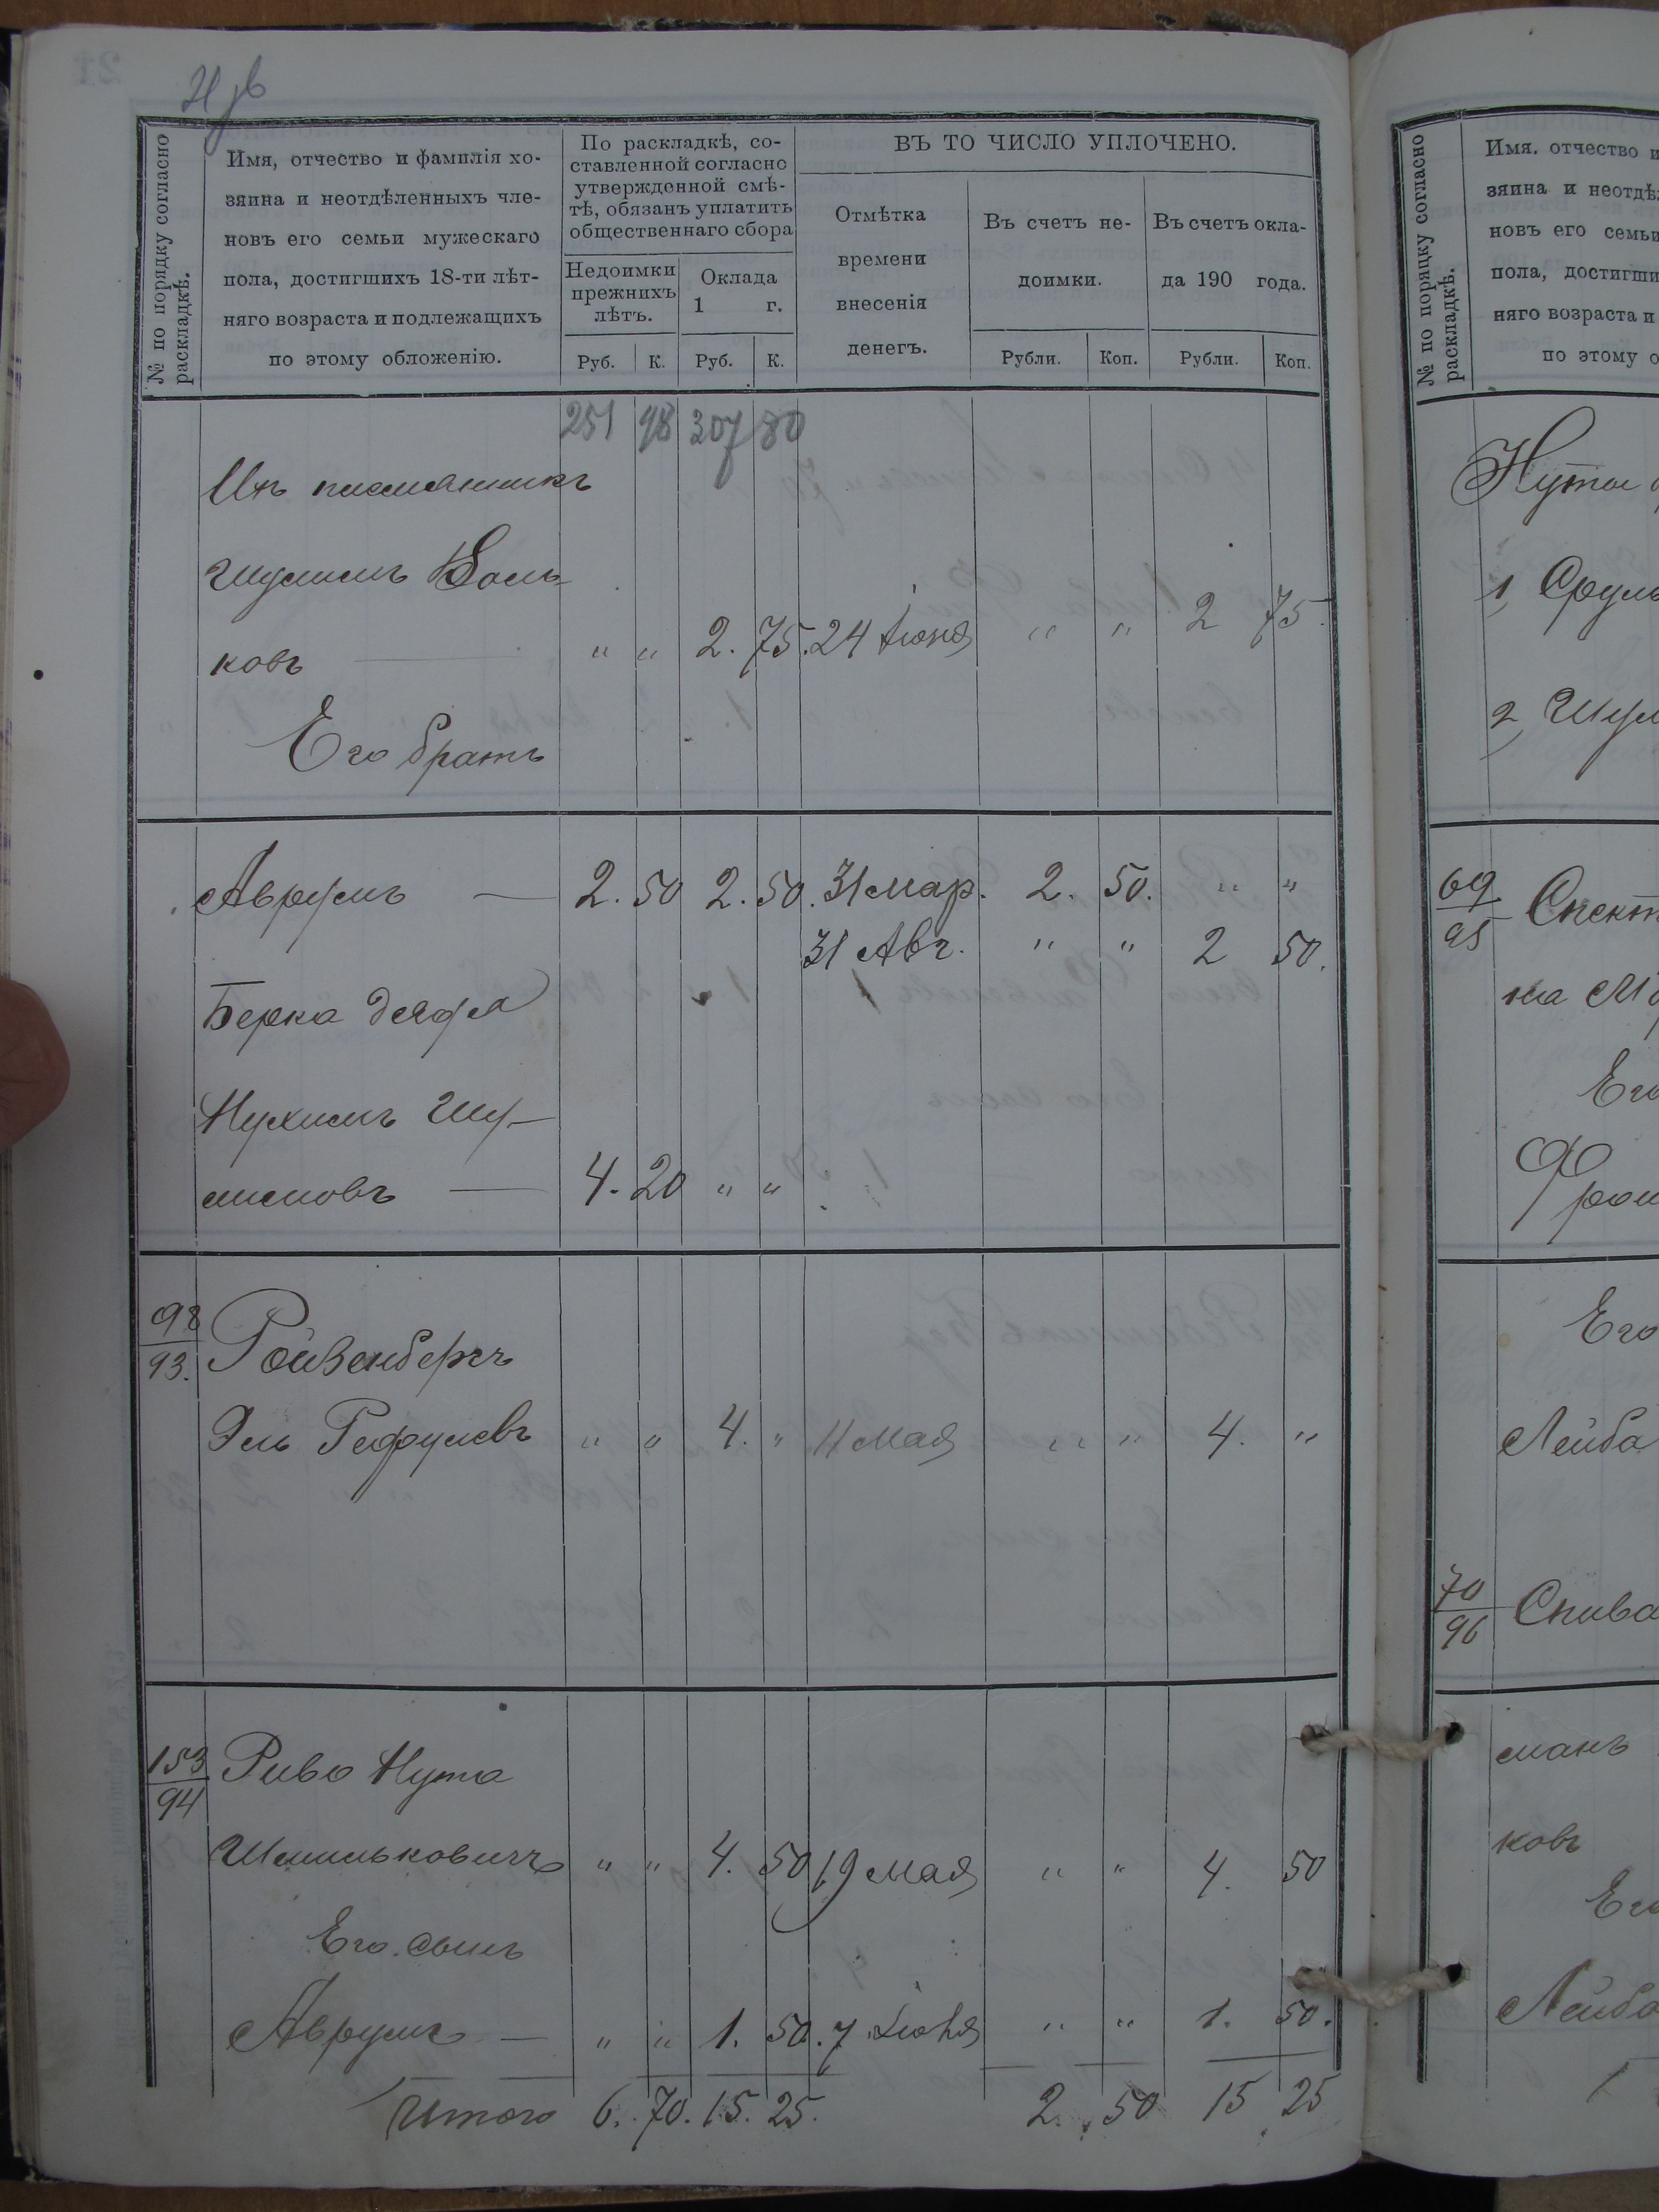 21
№ по порядку согласно раскладкѣ.
Имя, отчество и фамилія хо-
зяина и неотдѣленныхъ чле-
новъ его семьи мужескаго
пола, достигшихъ 18-ти лѣт-
няго возраста и подлежащихъ
по этому обложенію.
По раскладкѣ, со-
ставленной согласно
утвержденной смѣ-
тѣ, обязанъ уплатить
общественнаго сбора
Недоимки
прежнихъ
лѣтъ.
Оклада
1 г.
Руб. К. Руб. К.
ВЪ ТО ЧИСЛО УПЛОЧЕНО.
Отмѣтка
времени
внесенія
денегъ.
Въ счетъ не-
доимки.
Въ счетъ окла-
да 190 года.
Рубли. Коп. Рубли. Коп.
251 98 307 80
Ихъ племянникъ
Шулимъ Воль-
ковъ — " " 2. 75. 24 Іюня " " 2 75.
Его братъ
Аврумъ — 2. 50 2. 50. 31 Мар. 2. 50. " "
31 Авг. " " 2 50.
Берка дядя
Нухимъ Шу-
лимовъ — 4. 20 " "
98/93. Ройзенбергъ
Эль Рефулевъ " " 4. " 11 Мая " " 4. "
153/94 Риво Нута
Шмильковичъ " " 4. 50 19 Мая " " 4. 50
Его сынъ
Аврумъ — " " 1. 50. 7 Іюня " " 1. 50.
Итого 6. 70. 15. 25. 2. 50 15 25
№ по порядку согласно раскладкѣ.
Имя. отчество и
зяина и неотдѣ
новъ его семьи
пола, достигши
няго возраста и
по этому о
Нута
1, Сруль
2, Шул
69/95 Спект
на М
Его
Фрои
Его
Лейба
70/96 Спива
манъ
ковъ
Его
Лейба